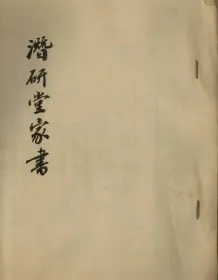 潛研堂家書